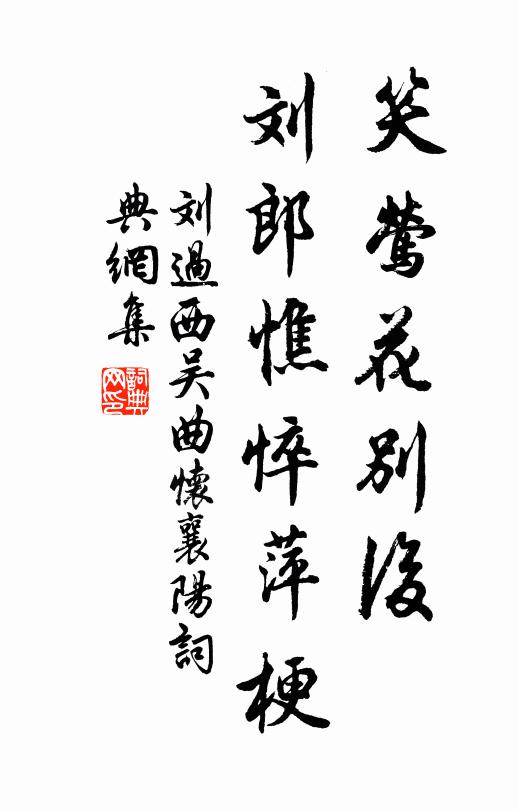 笑鶯花別後
刘郎憔悴萍梗
刘過西吴曲懷襄陽詞
典網集
詞典网印